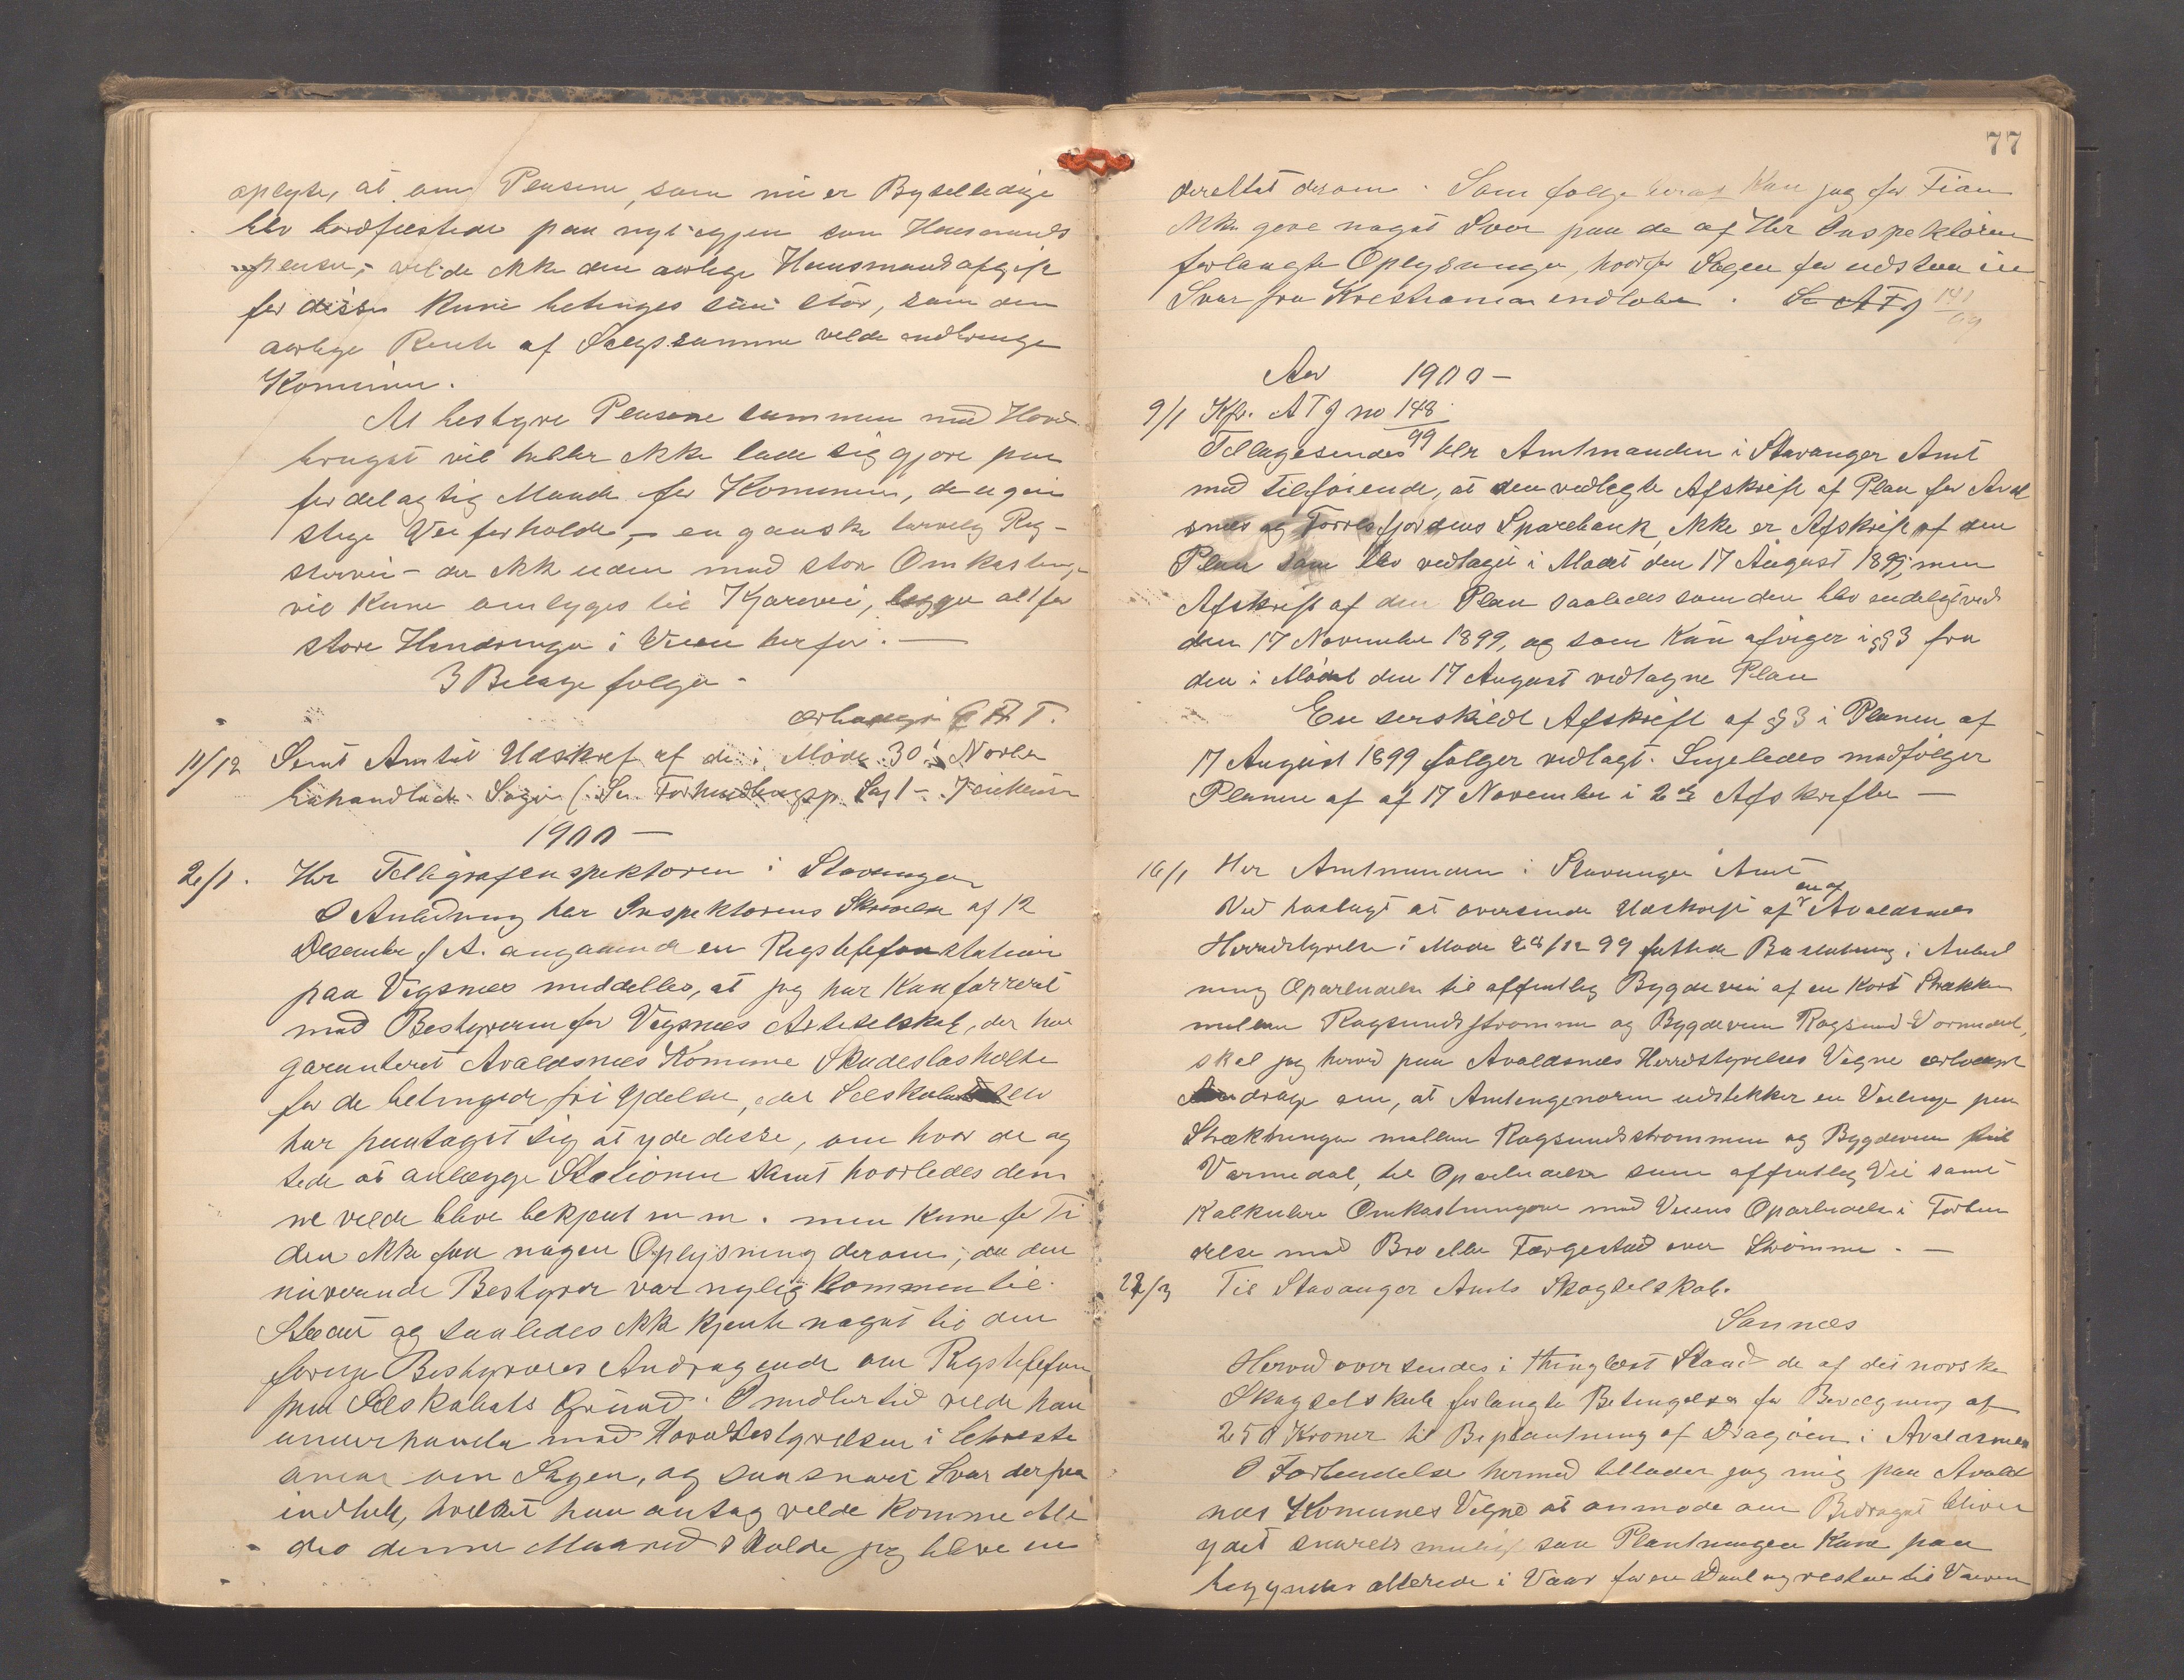 oplyse, at om Pladsene, som nu er Byselledige
blev bordfæstede paa nyt igjen som Husmands
pladser, vilde ikke den aarlige Husmandsafgift
for disse kune betinges saa stor, som den
aarlige Rente af Salgssumme vilde indbringe
Komunen.
At bestyre Pladsene sammen med Hoved
bruget vil heller ikke lade sig gjøre paa
fordelagtig Maade for Komunen, de ugun
stige Veiforholde, – en ganske daarlig
– der ikke uden med store Omkostninge
vil kune omlægges til Kjørevei, lægger altfor
store Hindringer i Veien herfor. —
3 Bilage følger –
ærbødigst
11/12 Sendt Amtet Udskrift af de i Møde 30te Novbr
behandlede Sager (Se Forhandlingsp. Sag 1 –
1900 —
2/1. Hr Telegrafinspektøren i Stavanger
I Anledning Herr Inspektørens Skrivelse af 12
Desember f A. angaaende en Rigstelefonstation
paa Vigsnæs meddeles, at jeg har Konfarreret
med Bestyreren for Vigsnæs Aktieselskab, der har
garanteret Avaldsnæs Komune Skadesløsholdt
for de betingede fri Ydelser, eller Selskabet selv
har paataget sig at yde disse, om hvor de ag
tede at anlægge Stationen samt hvorledes den
ne vilde blive bekjent m m. men kune for Ti
den ikke faa nogen Oplysning derom, da den
nuværende Bestyrer var nylig kommen til
Stedet og saaledes ikke kjente noget til den
forrige Bestyreres Andragende om Rigstelefon
paa Selskabets Grund. Imidlertid vilde han
underhandle med Hovedbestyrelsen i
om Sagen, og saasnart Svar derpaa
indhentet, hvilket han antog vilde komme
denne Maaned skulde jeg blive un
77
derettet derom. Som følge heraf kan jeg for Tiden
ikke give noget Svar paa de af Hr Inspektøren
forlangte Oplysninger, hvorfor Sagen faar udstaa til
Svar fra Kristiania indløber. Se A T J 141/99
Aar 1900 –
9/1 Kp. A T J no 148/99
Tilbagesendes Hr Amtmanden i Stavanger Amt
med Tilføiende, at den vedlagte Afskrift af Plan for Avald
snæs og Torvestadfjordens Sparebank, ikke er Afskrift af den
Plan som blev vedtaget i Mødet den 17 August 1899, men
Afskrift af den Plan saaledes som den blev endeligt ved
den 17 November 1899, og som kun afviger i § 3 fra
den i Mødet den 17 August vedtagne Plan
En serskildt Afskrift af § 3 i Planen af
17 August 1899 følger vedlagt. Ligeledes medfølger
Planen af af 17 November i 2de Afskrifter —
16/1 Herr Amtmanden i Stavanger Amt
Ved hoslagt at oversende Udskrift af en af Avaldsnæs
Herredstyrelse i Møde 28/12 99 fattede Beslutning, i Anled
ning Oparbeidelse til offentlig Bygdevei af en Kort Strækk
mellem Røgsundstrømmen og Bygdeveien Røgsund-Vormedal,
skal jeg herved paa Avaldsnæs Herredstyrelses Vegne ærbødigst
Andrage om, at Amtsingeniøren udstikker en Veilinje paa
Strækningen mellem Røgsundstrømmen og Bygdeveien til
Vormedal, til Oparbeidelse som offentlig Vei samt
kalkulere Omkostningerne med Veiens Oparbeidelse i Forbin
delse med Bro eller Færgestød over Strømmen. —
22/3 Til Stavanger Amts Skogselskab.
Sannæs
Herved oversendes i thinglæst Stand de af det norske
Skogselskab forlangte Betingelser for Bevilgning af
250 Kroner til Beplantning af Dragøien i Avaldsnæs
I Forbindelse hermed tillader jeg mig paa Avalds
næs Komunes Vegne at anmode om Bidraget bliver
ydet snarest mulig saa Plantningen kune paa
begyndes allerede i Vaar for en Deel og resten til Vaaren